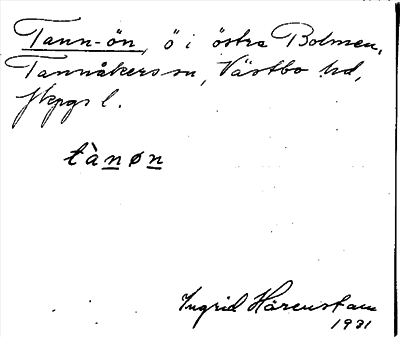 Tann-ön, ö i östra Bolmen,
Tannåkers sn, Västbo hd,
Jkpgs l.
tànøn
Ingrid Härenstam
1931